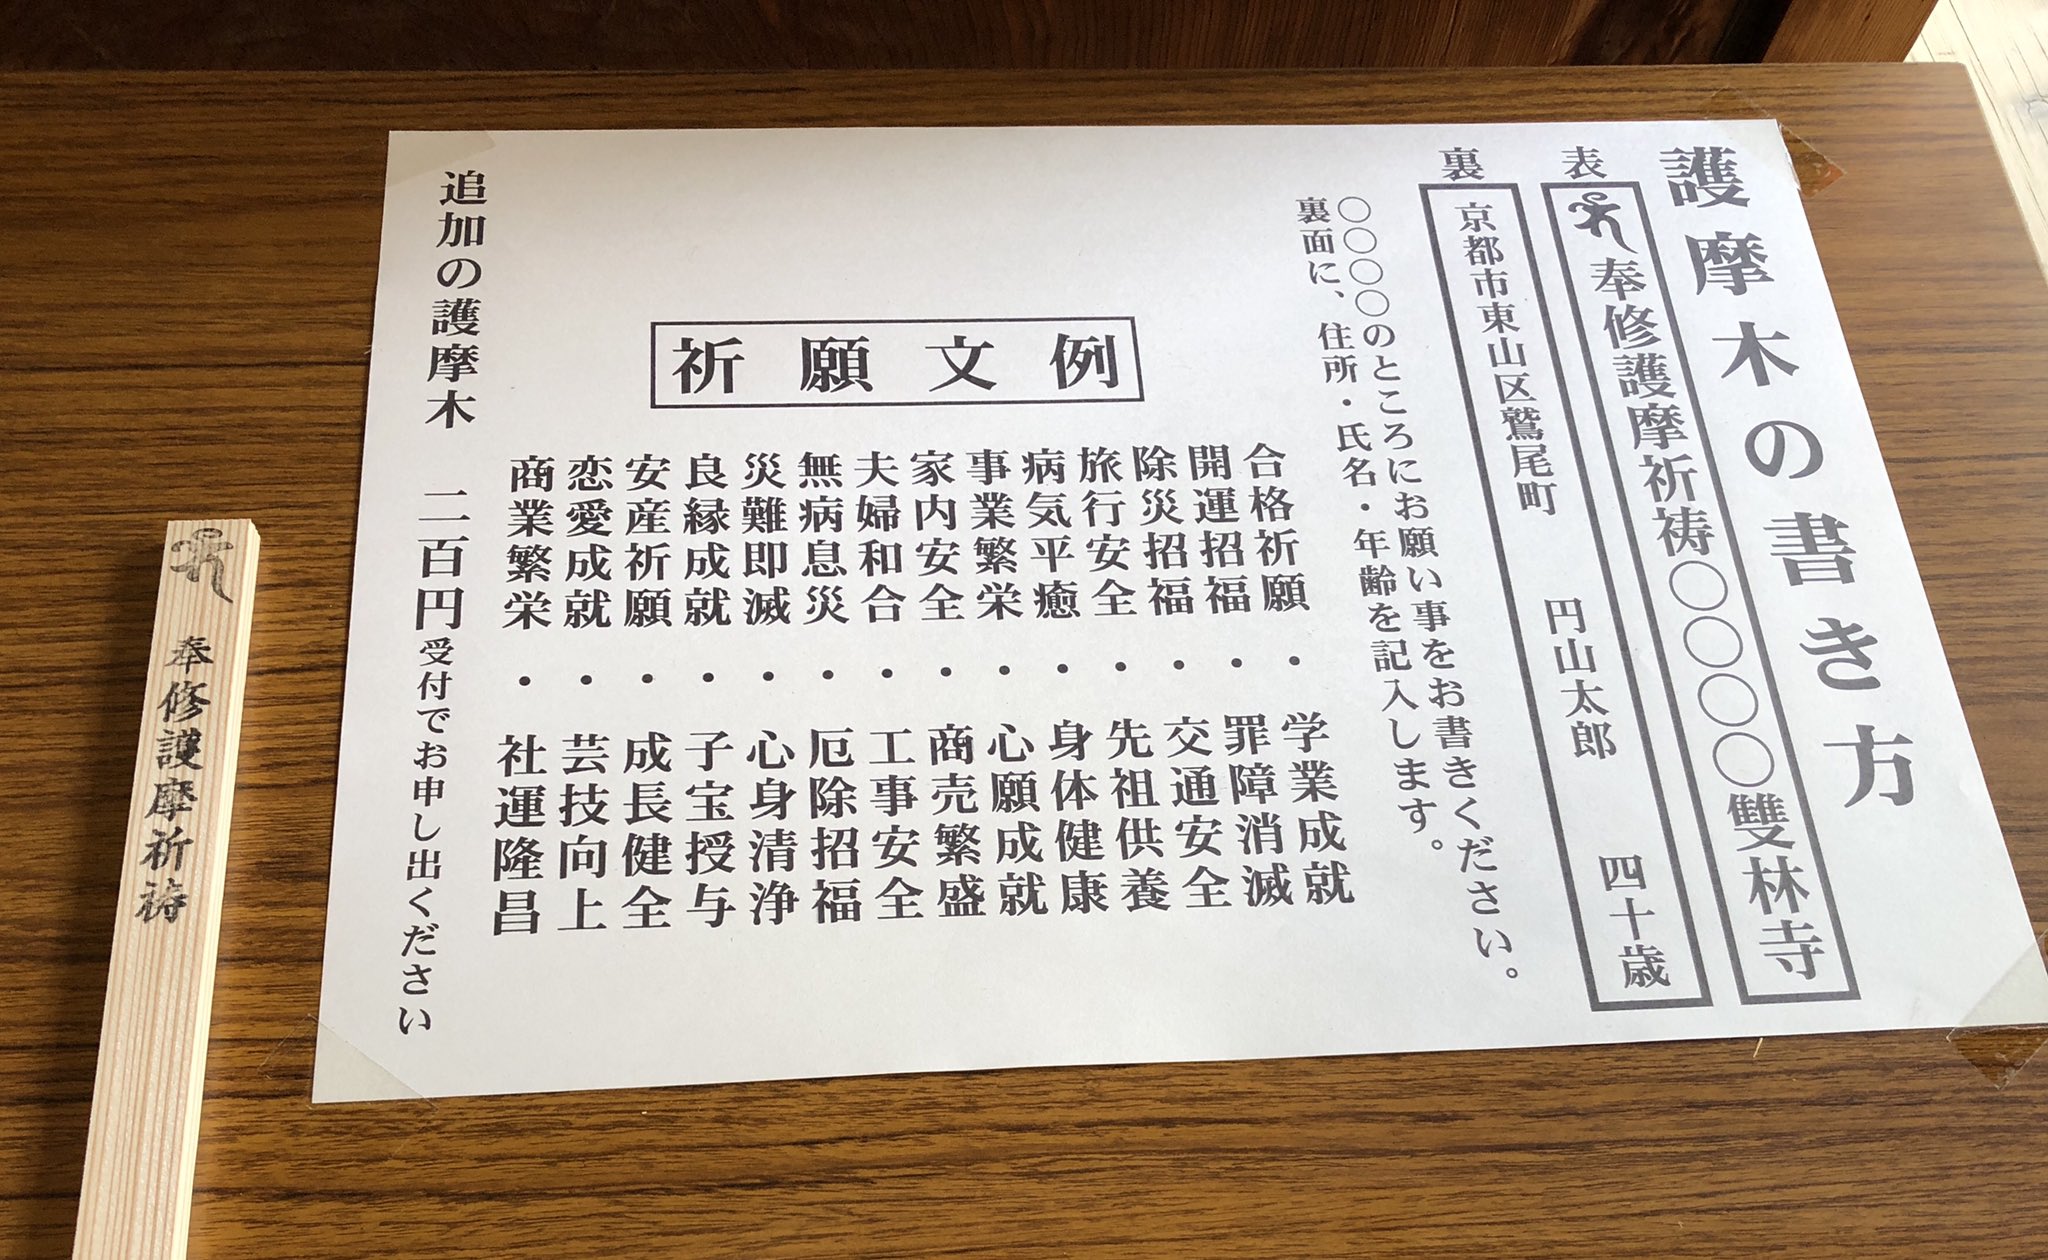 護摩木の書き方
表
奉修護摩祈祷〇〇〇〇雙林寺
裏
京都市東山区鷲尾町 円山太郎 四十歳
〇〇〇〇のところにお願い事をお書きください。
裏面に、住所・氏名・年齢を記入します。
祈願文例
合格祈願・学業成就
開運招福・罪障消滅
除災招福・交通安全
旅行安全・先祖供養
病気平癒・身体健康
事業繁栄・心願成就
家内安全・商売繁盛
夫婦和合・工事安全
無病息災・厄除招福
災難即滅・心身清浄
良縁成就・子宝授与
安産祈願・成長健全
恋愛成就・芸技向上
商業繁栄・社運隆昌
追加の護摩木 二百円受付でお申し出ください
奉修護摩祈祷